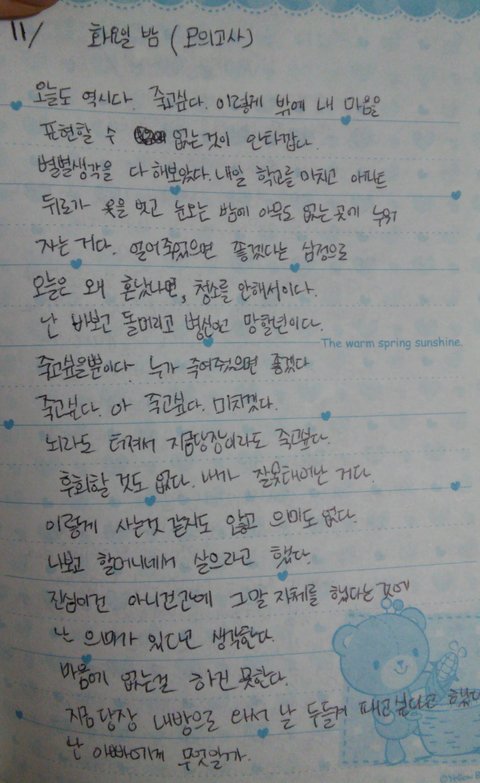 11/ 화요일 밤 (모의고사)
오늘도 역시다. 죽고싶다. 이렇게 밖에 내 마음을
표현할 수 없는것이 안타깝다.
별별생각을 다 해보았다. 내일 학교를 마치고 아파트
뒤로가 옷을 벗고 눈오는 밤에 아무도 없는 곳에 누워
자는 거다. 얼어죽었으면 좋겠다는 심정으로
오늘은 왜 혼났냐면, 청소를 안해서이다.
난 바보고 돌머리고 병신이고 망할년이다.
The warm spring sunshine.
죽고싶을뿐이다. 누가 죽여줬으면 좋겠다
죽고싶다. 아 죽고싶다. 미치겠다.
뇌라도 터져서 지금당장이라도 죽고싶다.
후회할 것도 없다. 내가 잘못태어난 거다.
이렇게 사는것 같지도 않고 의미도 없다.
나보고 할머니네서 살으라고 했다.
진심이건 아니건간에 그말 자체를 했다는 것에
난 의미가 있다면 생각한다.
마음에 없는걸 하진 못한다.
지금 당장 내방으로 와서 날 두들겨 패고 싶다고 했다
난 아빠에게 무엇일까.